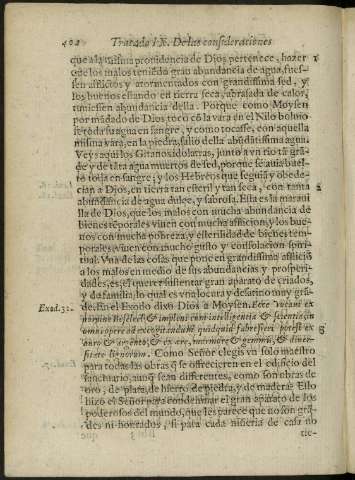 402 Tratado IX. De las consideraciones
que a la misma prouidencia de Dios pertenece, hazer
que los malos teniẽdo gran abundancia de agua, fues-
sen aflictos y atormentados con grandissima sed, y
los buenos estando en tierra seca, abrasada de calor,
tuuiessen abundancia della. Porque como Moysen
por mãdado de Dios tocò cõ la vara en el Nilo boluio-
se toda su agua en sangre, y como tocasse, con aquella
misma vara, en la piedra, salio della abũdãtissima agua.
Veys aqui los Gitanos idolatras, junto a vn rio tã grã-
de y de tãta agua muertos de sed, porque se auia buel-
to toda en sangre; y los Hebreos que seguiã y obede-
cian a Dios, en tierra tan esteril y tan seca, con tanta
abundancia de agua dulce, y sabrosa. Esta es la maraui
lla de Dios, que los malos con mucha abundancia de
bienes tẽporales viuen con mucha afliccion, y los bue-
nos con mucha pobreza, y esterilidad de bienes tem-
porales, viuen con mucho gusto y consolacion spiri-
tual. Vna de las cosas que pone en grandissima aflictiõ
a los malos en medio de sus abundancias y prosperi-
dades, es, el querer sustentar gran aparato de criados,
y da familia, lo qual es vna locura y desatino muy grã-
Exod. 31. de. En el Exodo dixo Dios a Moysen. Ecce vocaui ex
nomine Beseleel: & impleui eum intelligentia & scientia, in
omni opere ad excogitandum quidquid fabrefieri potest ex
auro & argento, & ex ære, marmore & gemmis, & diuer-
sitate lignorum. Como Señor elegis vn solo maestro
para todas las obras q̃ se ofrecieren en el edificio del
sanctuario, aunq̃ sean differentes, como son obras de
oro, de plata, de hierro, de piedra, y de madera? Esto
hizo el Señor para condennar el gran aparato de los
poderosos del mundo, que les parece que no son grã-
des ni honrados, si para cada niñeria de casa no
tie-